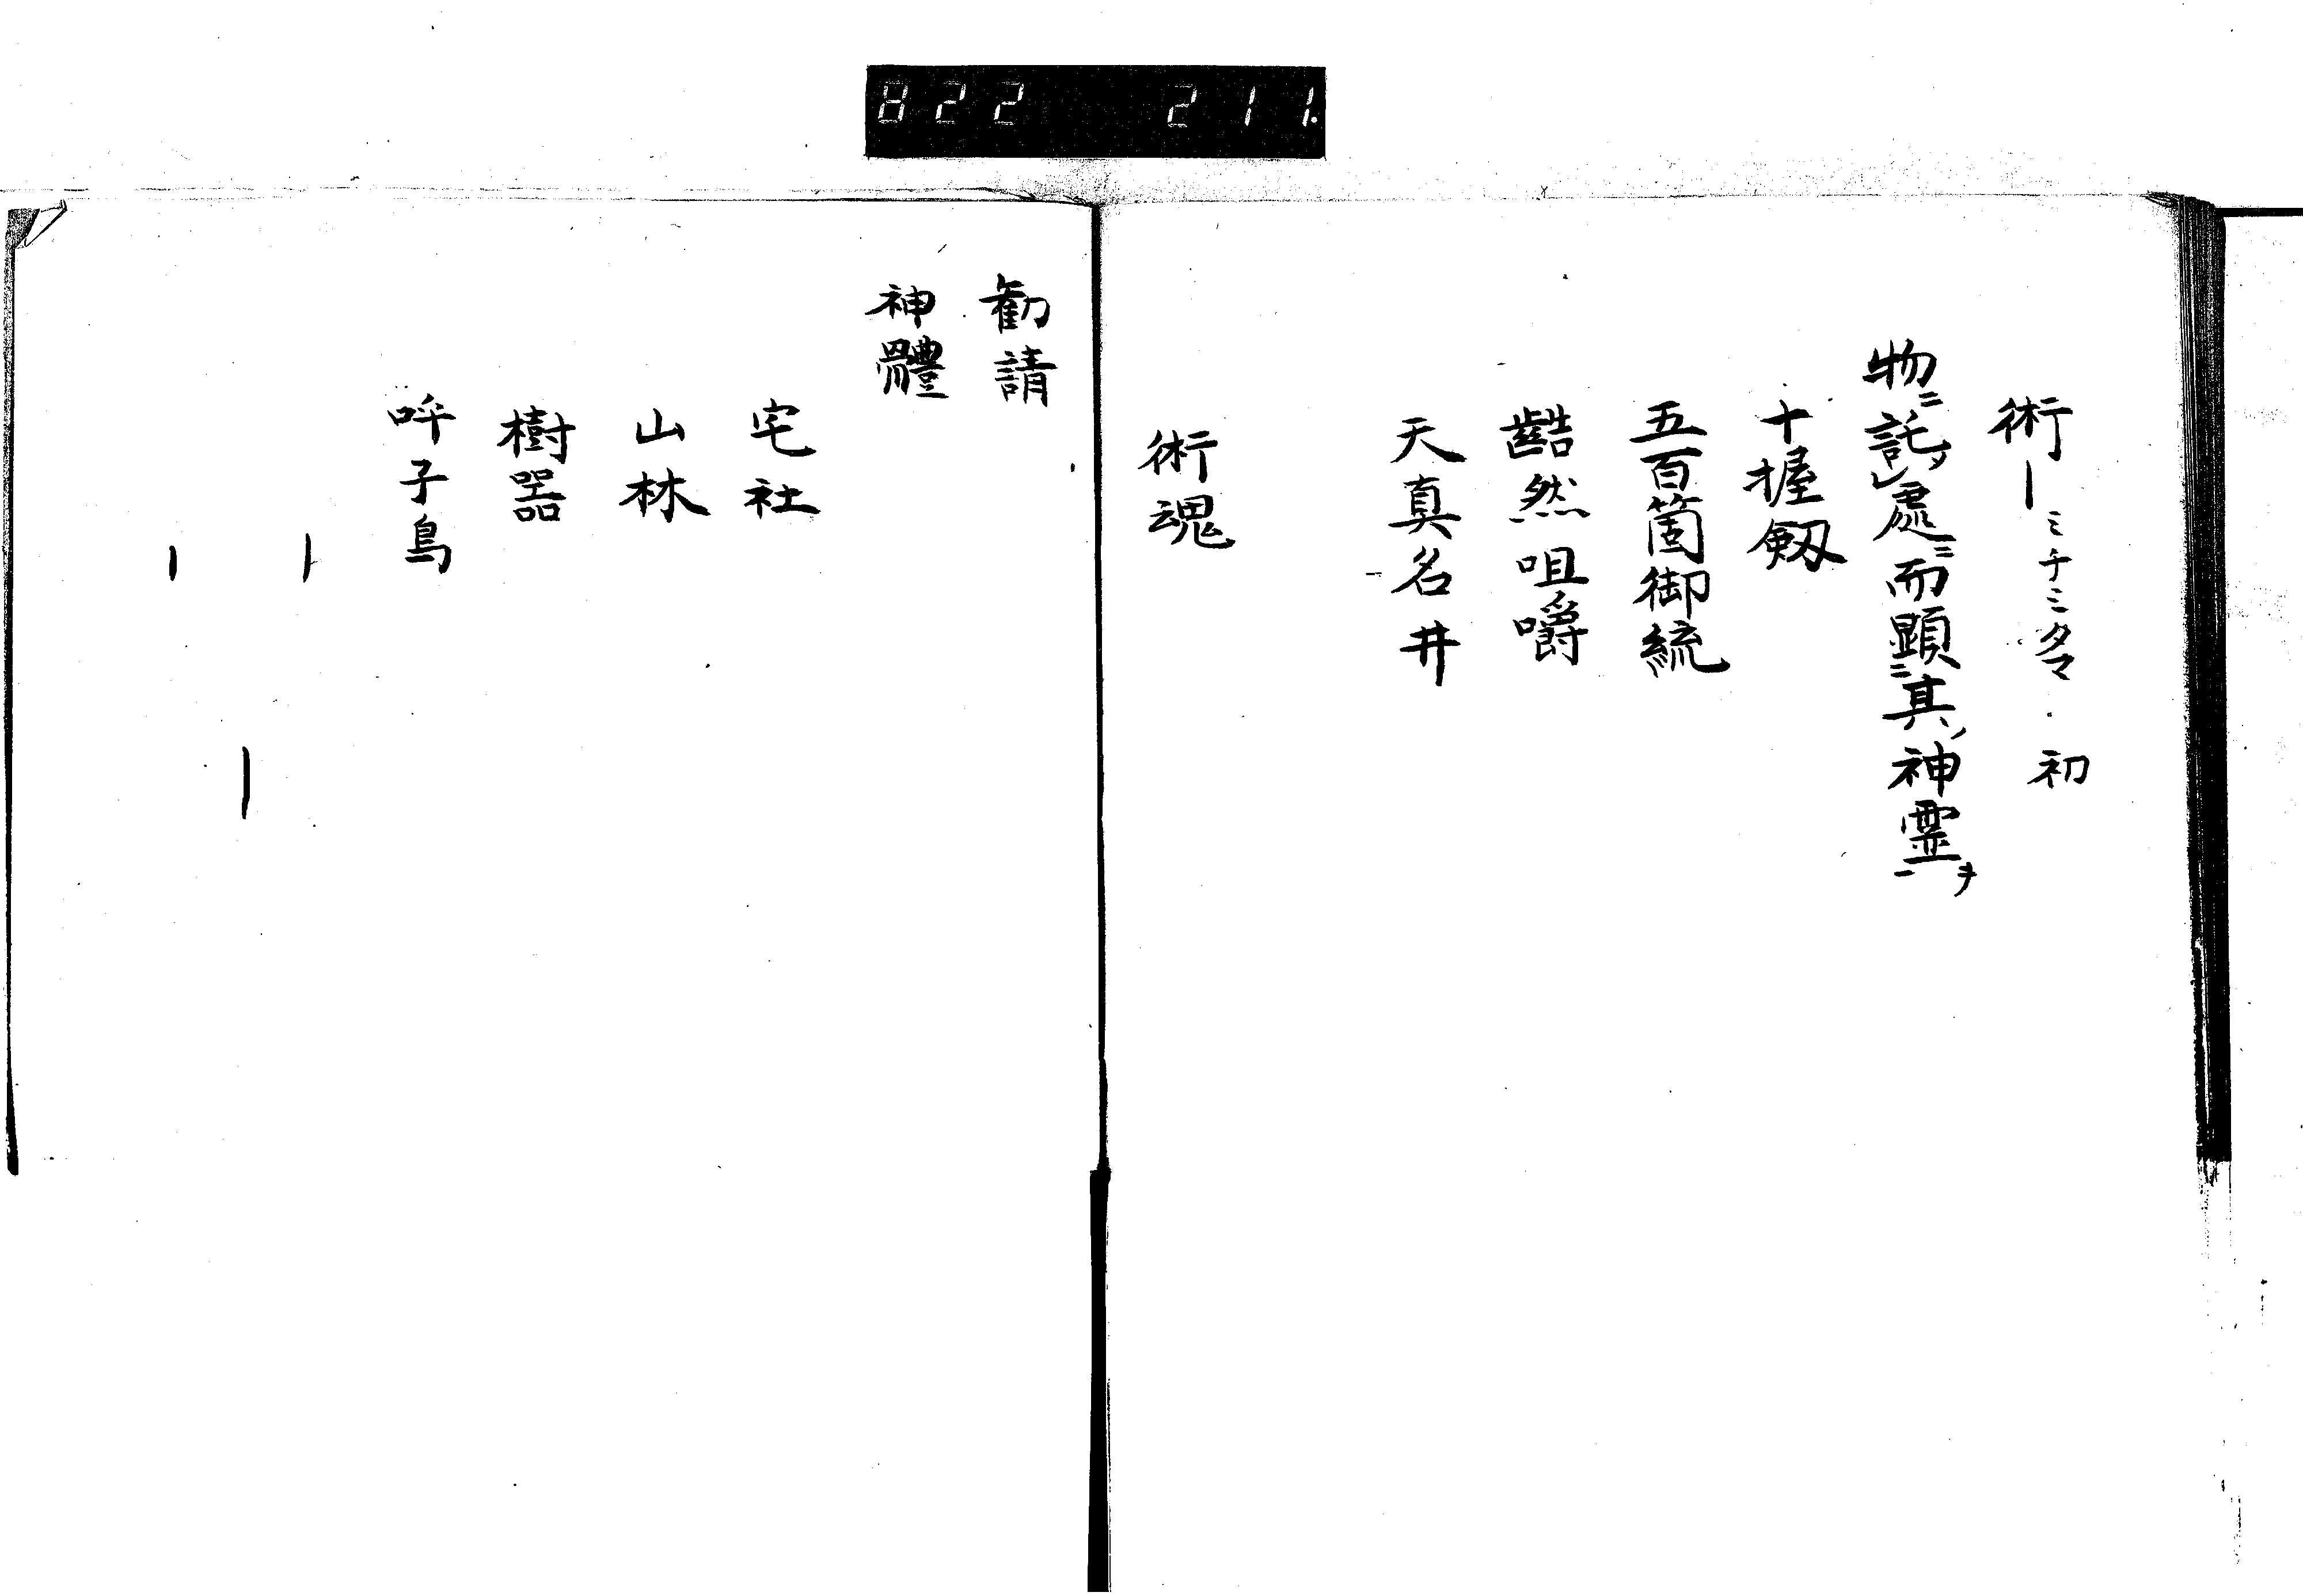 822 211.
術｜ミチミタマ 初
物ニ託タノ處ニ而顕ニ其ノ神霊ヲ
十握剱
五百箇御統
齰然咀嚼
天真名井
術魂
勧請
神軆
宅社
山林
樹噐
呼子鳥